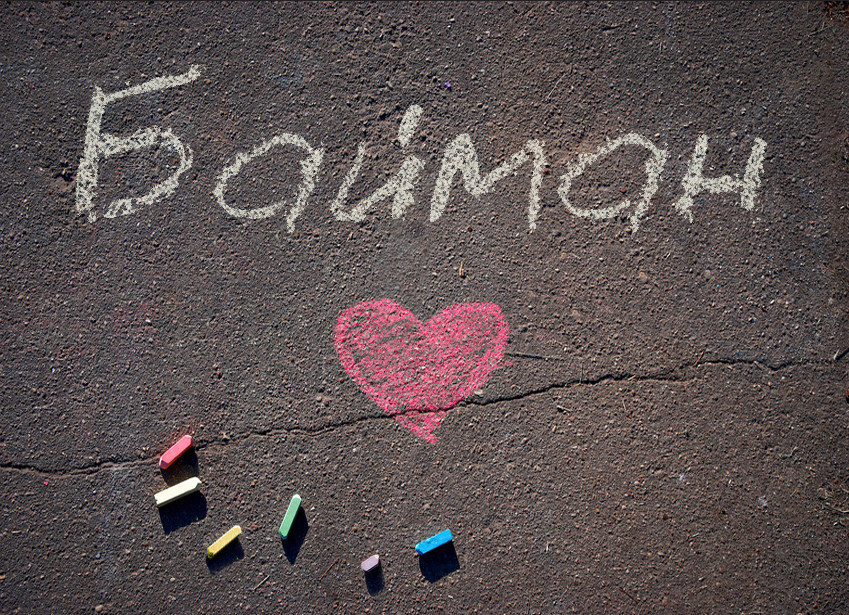 Байман